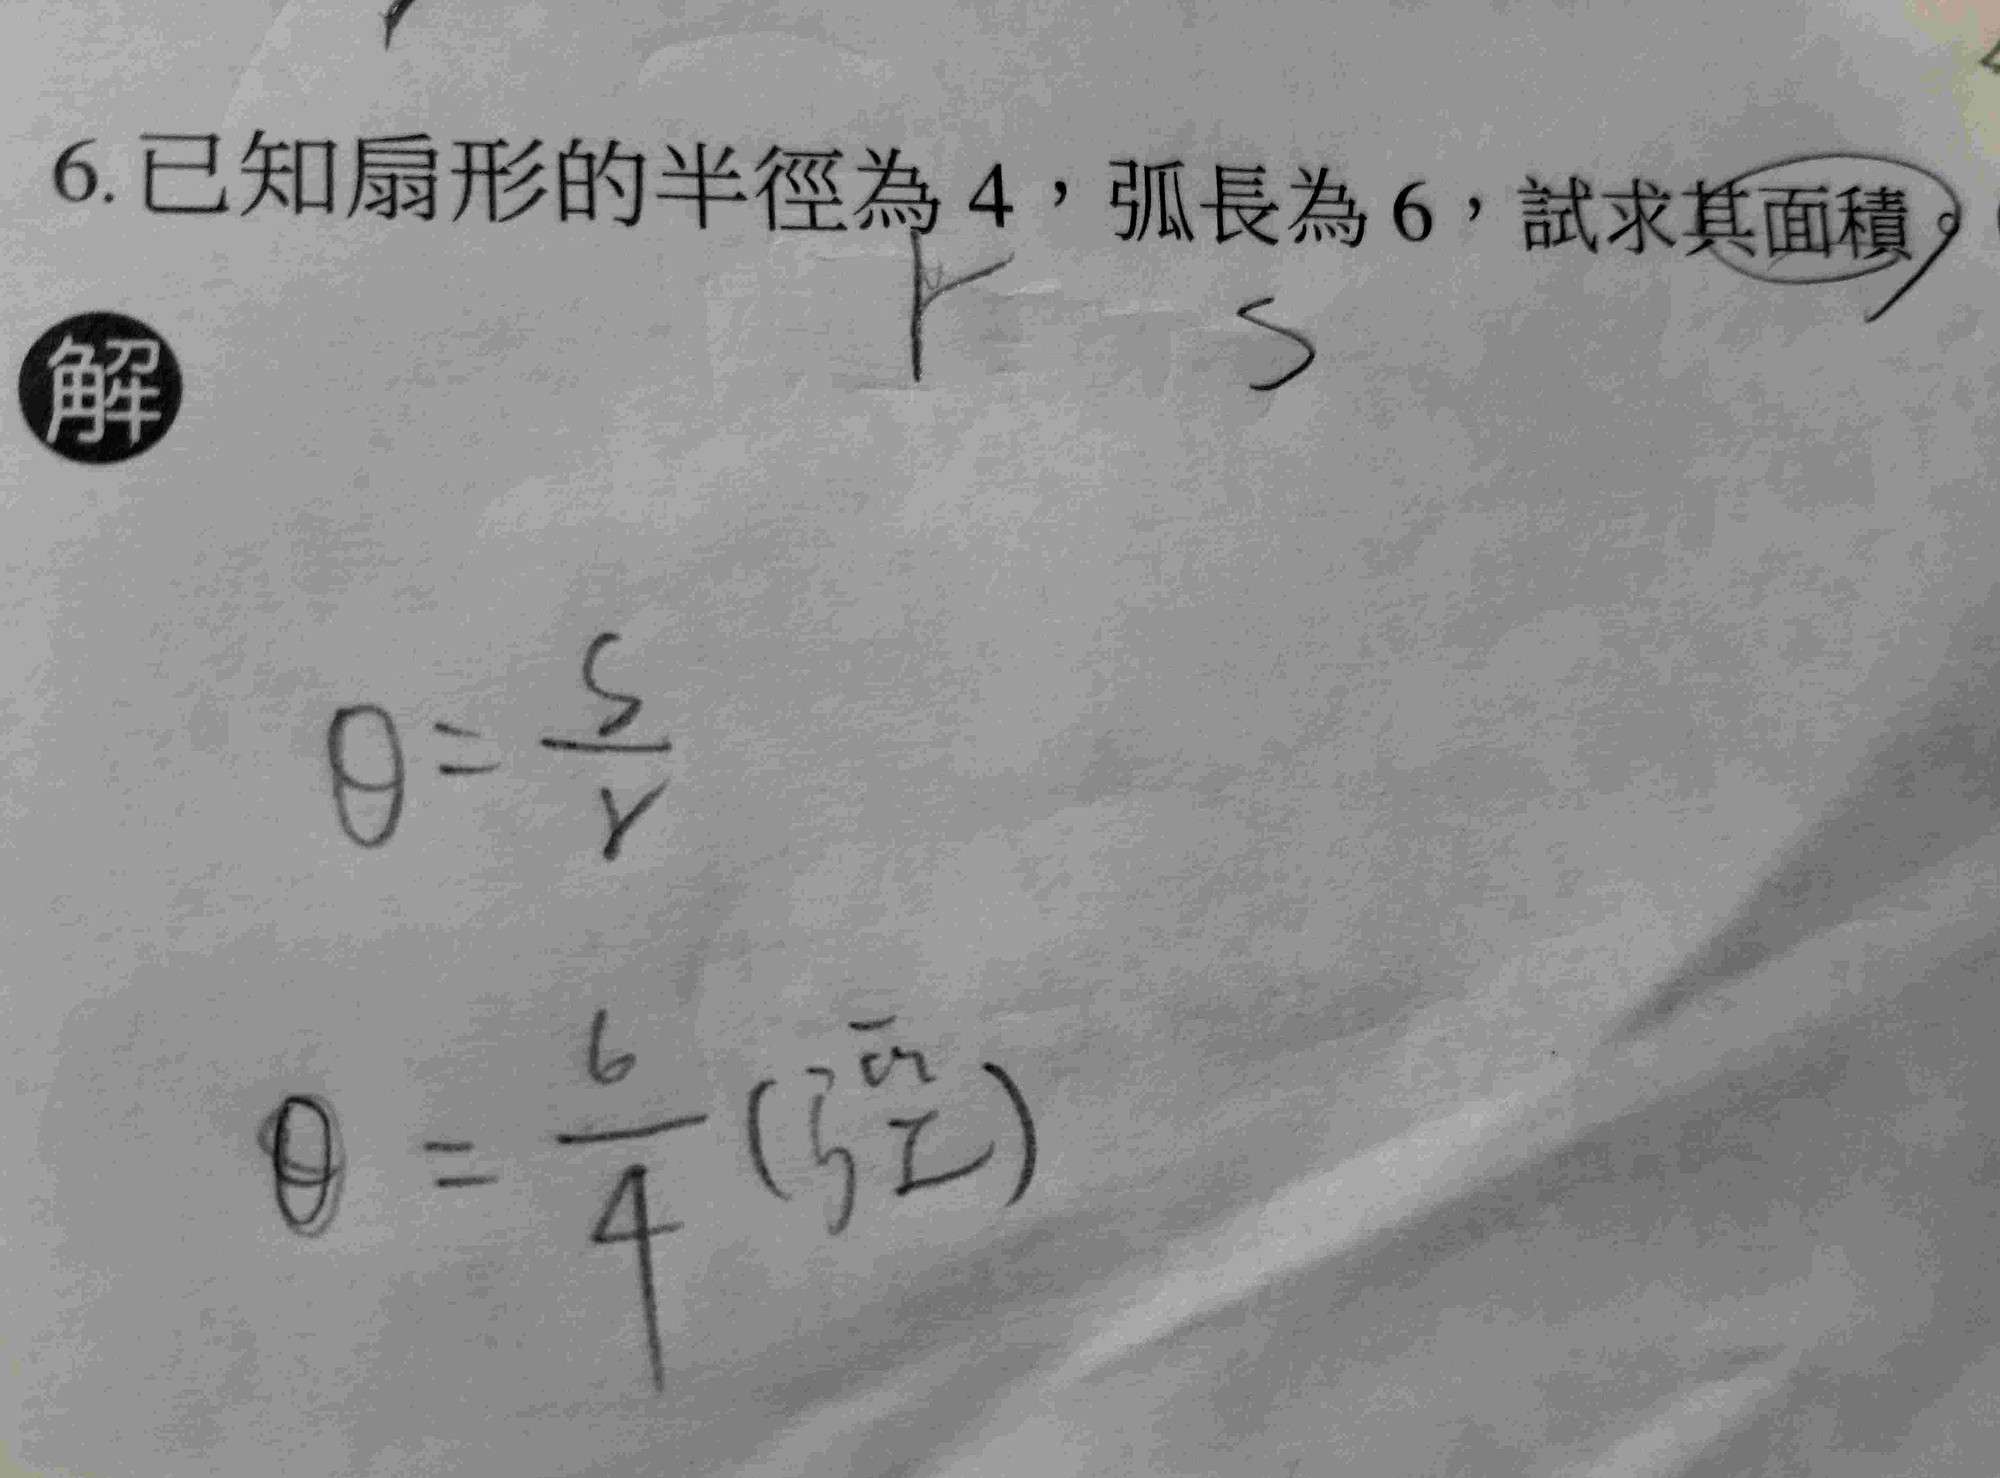 6. 已知扇形的半徑為 4，弧長為 6，試求其面積。
r s
解
θ = s/r
θ = 6/4 (弳)